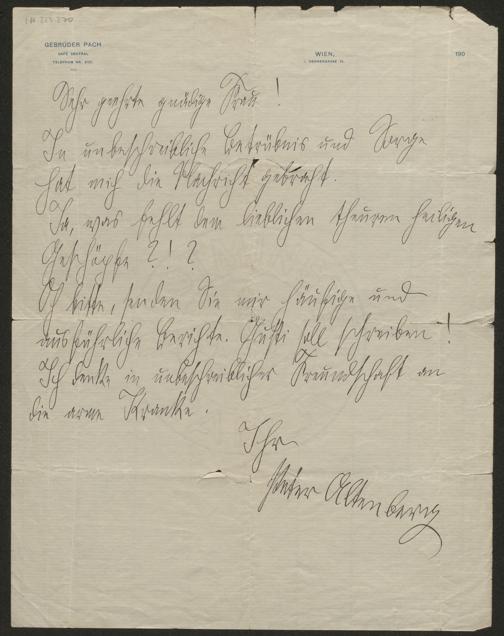 GEBRÜDER PACH
CAFÉ CENTRAL
TELEPHON NR.
WIEN,
I. HERRENGASSE
190
Sehr geehrte gnädige Frau!
In unbeschreibliche Betrübnis und Sorge
hat mich die Nachricht gebracht.
Ja, was fehlt dem lieblichen theuren heiligen
Geschöpfe ? ! ?
Ich bitte, senden Sie mir häufige und
ausführliche Berichte. Gusti soll schreiben!
Ich denke in unbeschreiblicher Freundschaft an
die arme Kranke.
Ihr
Peter Altenberg